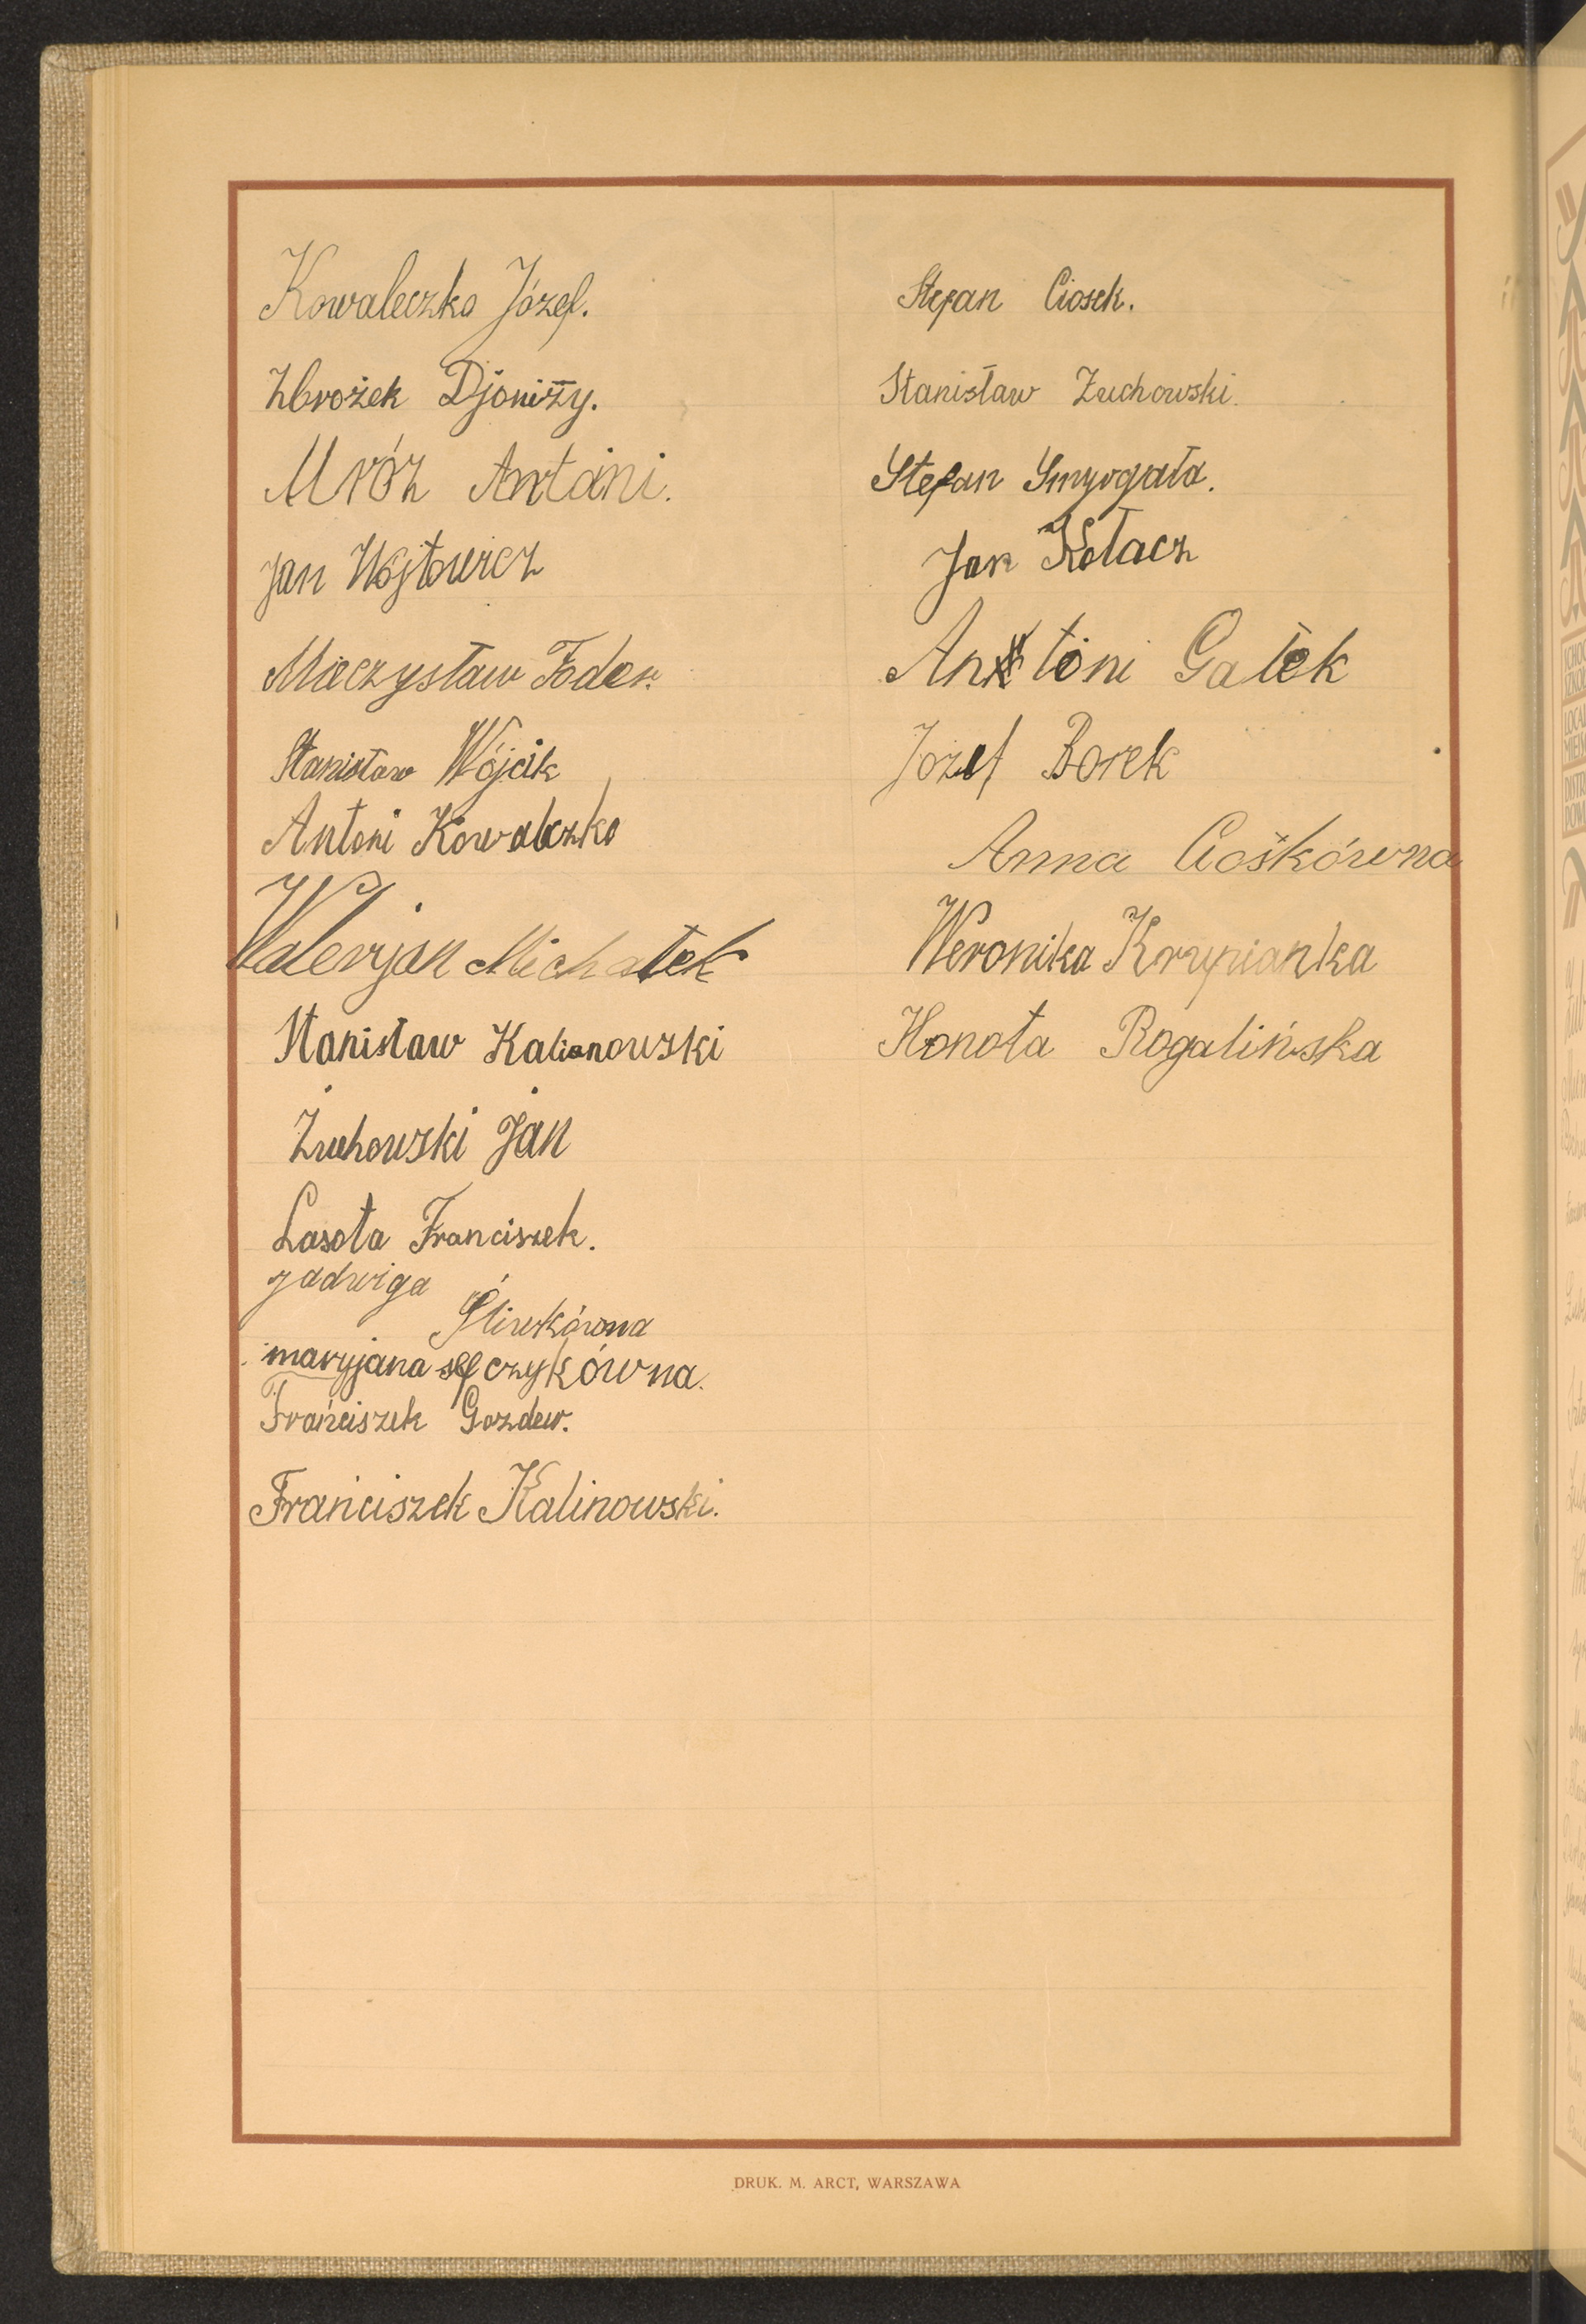 Kowaleczko Józef.
Zbrożek Djonizy.
Mróz Antoni.
Jan Wójtowicz
Mieczysław Foder.
Stanisław Wójcik
Antoni Kowalczko
Walerjan Michałek
Stanisław Kalinowski
Żuchowski Jan
Lasota Franciszek.
Jadwiga
Śliwkówna
maryjana czykówna.
Franciszek Gozdew.
Franciszek Kalinowski.
Stefan Ciosek.
Stanisław Żuchowski.
Stefan Smyrgała.
Jan Kołacz
Antoni Gałek
Józef Borek
Anna Ciośkówna
Weronika Krupianka
Honota Rogalińska
DRUK. M. ARCT, WARSZAWA